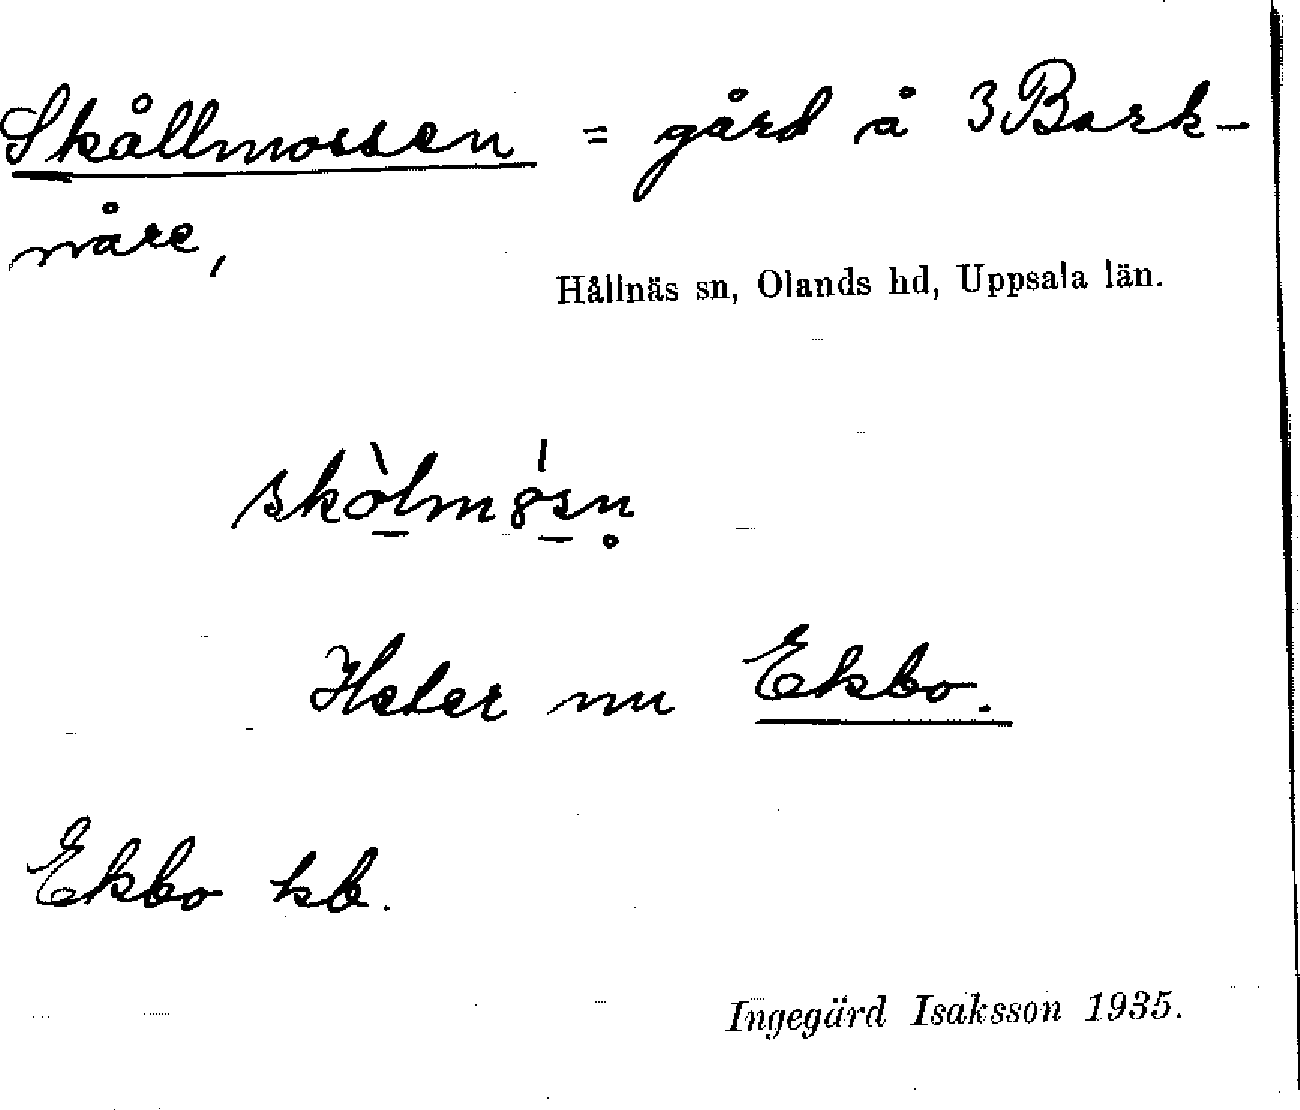 Skållmossen = gård å 3 Bark-
våre,
Hållnäs sn, Olands hd, Uppsala län.
Heter nu Ekbo.
Ekbo kb.
Ingegärd Isaksson 1935.